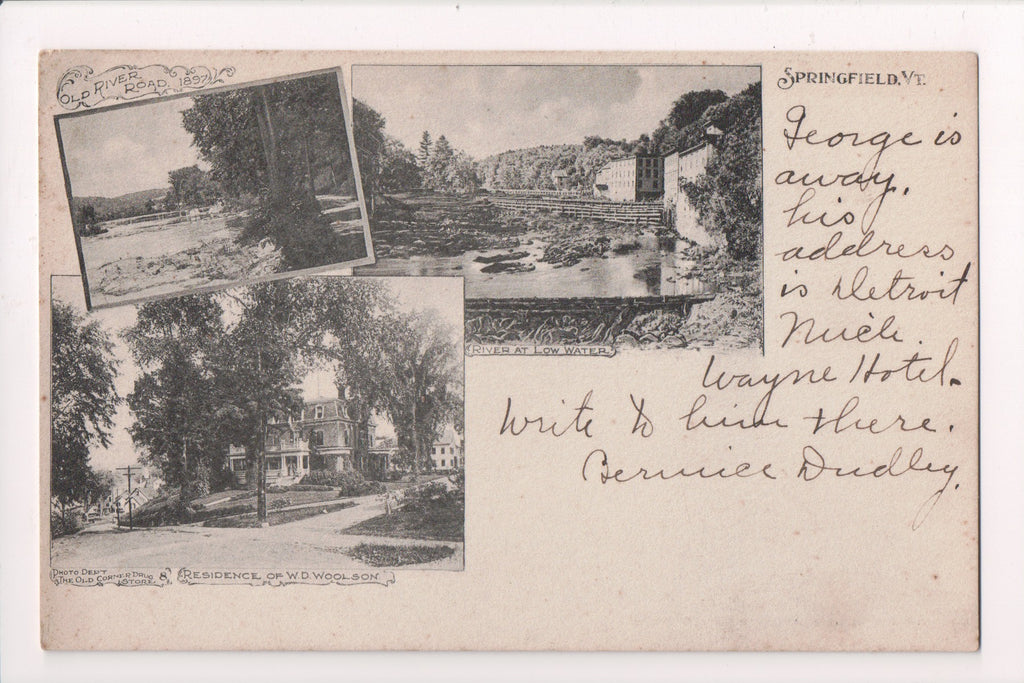 OLD RIVER
ROAD. 1897
SPRINGFIELD, VT.
George is
away.
his
address
is Detroit
Mich.
Wayne Hotel.
Write to him there.
Bernice Dudley.
RIVER AT LOW WATER.
PHOTO DEP'T
THE OLD CORNER DRUG
STORE.
8
RESIDENCE OF W. D. WOOLSON